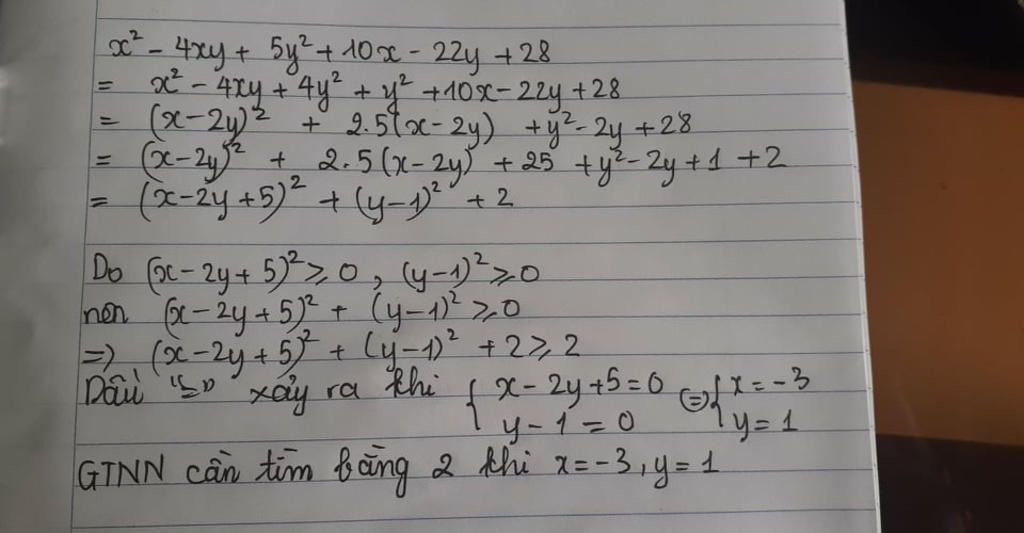 x² - 4xy + 5y² + 10x - 22y + 28
= x² - 4xy + 4y² + y² + 10x - 22y + 28
= (x - 2y)² + 2.5(x - 2y) + y² - 2y + 28
= (x - 2y)² + 2.5(x - 2y) + 25 + y² - 2y + 1 + 2
= (x - 2y + 5)² + (y - 1)² + 2
Do (x - 2y + 5)² ≥ 0, (y - 1)² ≥ 0
nên (x - 2y + 5)² + (y - 1)² ≥ 0
=> (x - 2y + 5)² + (y - 1)² + 2 ≥ 2
Dấu "=" xảy ra khi { x - 2y + 5 = 0 ⇔ { x = -3
y - 1 = 0 y = 1
GTNN cần tìm bằng 2 khi x = -3, y = 1